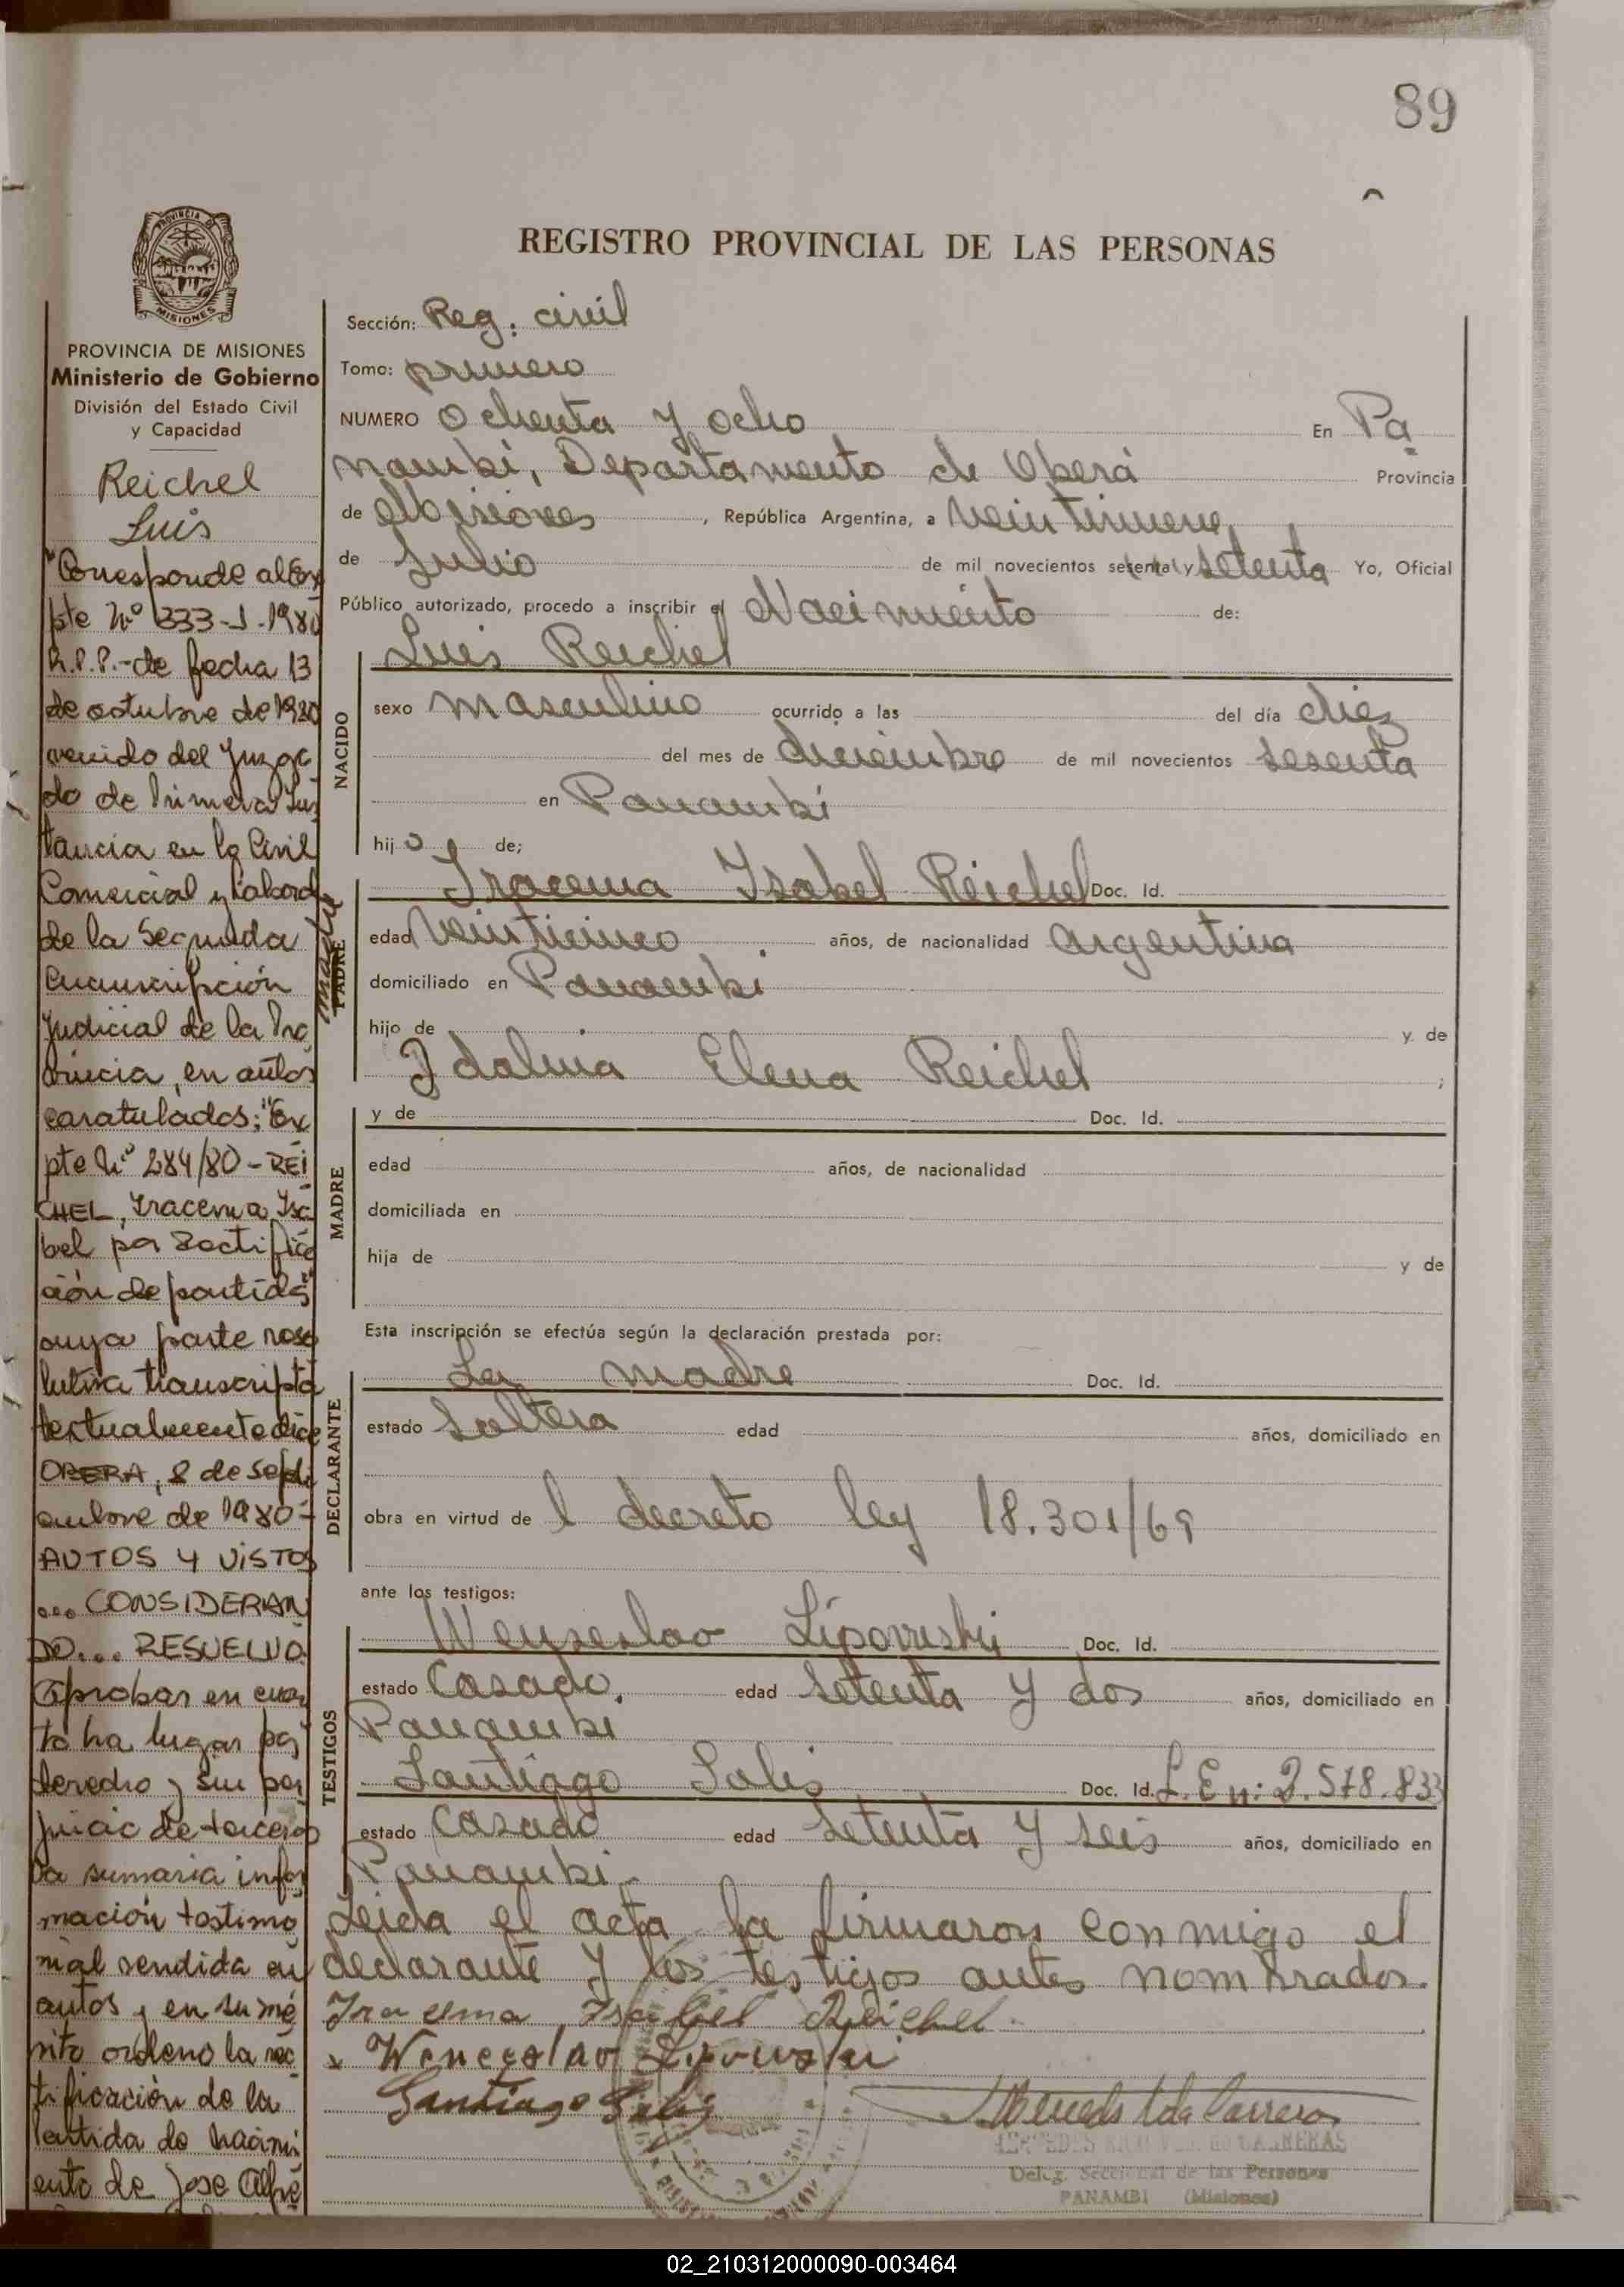 89
REGISTRO PROVINCIAL DE LAS PERSONAS
PROVINCIA DE
MISIONES
PROVINCIA DE MISIONES
Ministerio de Gobierno
División del Estado Civil
y Capacidad
Reichel
Luis
"Corresponde al Ex
pte Nº 333-J-1980
R.P.P.- de fecha 13
de octubre de 1980
venido del Juzga
do de Primera Ins
tancia en lo Civil
Comercial y Laboral
de la Segunda
Circunscripción
Judicial de la Pro
vincia, en autos
caratulados: "Ex
pte Nº 284/80 - REI
CHEL, Iracema Isa
bel por rectifica
ción de partida"
cuya parte reso
lutiva transcripta
textualmente dice
OBERA, 8 de Septi
embre de 1980-
AUTOS Y VISTOS
... CONSIDERAN
DO... RESUELVO
Aprobar en cuan
to ha lugar por
derecho y sin per
juicio de terceros
la sumaria infor
mación testimo
nial rendida en
autos y en su mé
rito ordeno la rec
tificación de la
Partida de Nacimi
ento de Jose Alfre
Sección: Reg. civil
Tomo: primero
NUMERO Ochenta y ocho En Pa
nambí, Departamento de Oberá Provincia
de Misiones, República Argentina, a veintinueve
de Julio de mil novecientos sesenta y setenta Yo, Oficial
Público autorizado, procedo a inscribir el Nacimiento de:
Luis Reichel
NACIDO
sexo masculino ocurrido a las del día diez
del mes de diciembre de mil novecientos sesenta
en Panambí
hijo de;
Iracema Isabel Reichel Doc. Id.
madre
PADRE
edad veinticinco años, de nacionalidad argentina
domiciliado en Panambí
hijo de y de
Idalina Elena Reichel ;
y de Doc. Id.
MADRE
edad años, de nacionalidad
domiciliada en
hija de y de
Esta inscripción se efectúa según la declaración prestada por:
La madre Doc. Id.
DECLARANTE
estado Soltera edad años, domiciliado en
obra en virtud de l decreto ley 18.301/69
ante los testigos:
Wenseslao Lipovuski Doc. Id.
TESTIGOS
estado Casado. edad setenta y dos años, domiciliado en
Panambí
Santiago Solis Doc. Id. L.E n: 2.578.833
estado Casado edad setenta y seis años, domiciliado en
Panambí.
Leida el acta la firmaron conmigo el
declarante y los testigos antes nombrados.
Iracema Isabel Reichel.
x Wenceslao Lipowski
Santiago Solis
DE CARRERAS
Deleg. Seccional de las Personas
PANAMBI (Misiones)
02_210312000090-003464